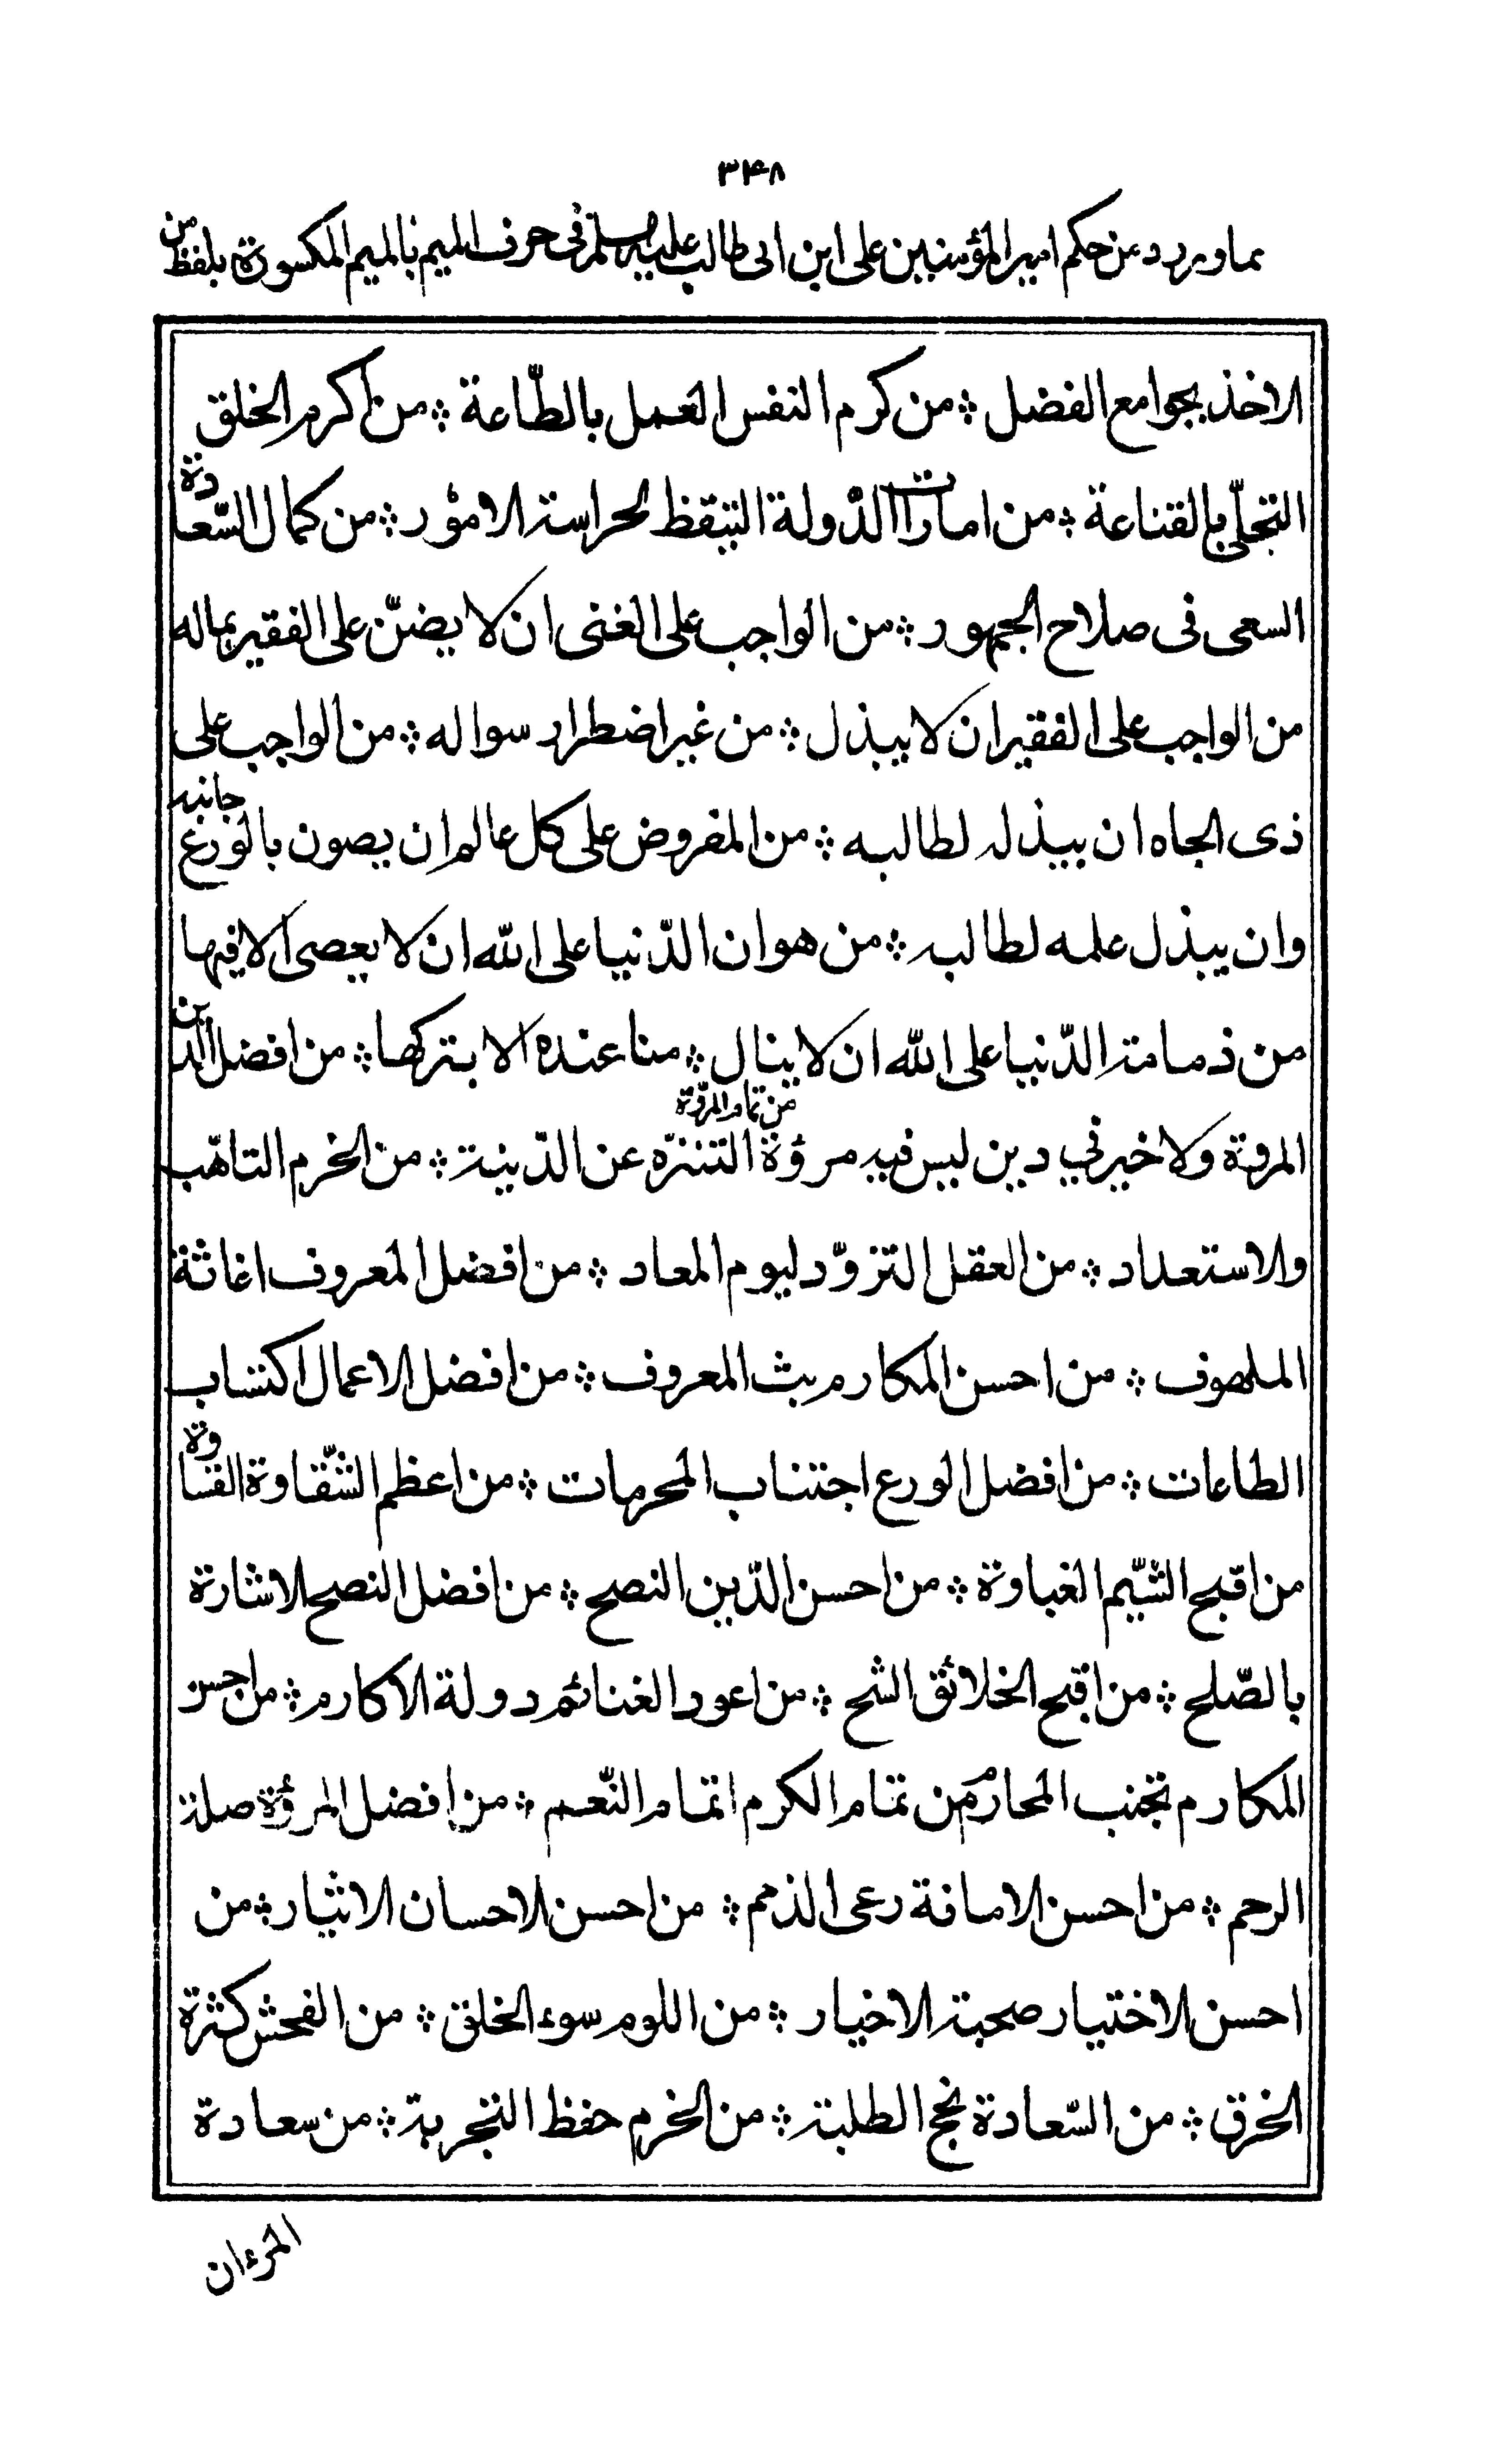 ۳۴۸
مما ورد من حكم امير المؤمنين على ابن ابى طالب عليه السلم فى حرف الميم بالميم المكسورة بلفظ من
الاخذ بجوامع الفضل ؞ من كرم النفس العمل بالطّاعة ؞ من اكرم الخلق
التجلّى بالقناعة ؞ من امارات الدّولة التيقظ لحراسة الامؤر ؞ من كمال السّعادة
السعى فى صلاح الجمهور ؞ من الواجب على الغنى ان لا يضنّ على الفقير بماله
من الواجب على الفقير ان لا يبذل ؞ من غير اضطرار سواله ؞ من الواجب على
ذى الجاه ان يبذله لطالبه ؞ من المفروض على كل عالم ان يصون بالورع جانبه
وان يبذل علمه لطالبه ؞ من هوان الدّنيا على الله ان لا يعصى الا فيها
من ذمامة الدّنيا على الله ان لا ينال ؞ مما عنده الا بتركها ؞ من افضل الدين
المروّة ولا خير في دين ليس فيه مروّة من تمام المروّة التنزّه عن الدّنية ؞ من الخرم التاهّب
والاستعداد ؞ من العقل التزوّد ليوم المعاد ؞ من افضل المعروف اغاثة
الملهوف ؞ من احسن المكارم بث المعروف ؞ من افضل الاعمال اكتساب
الطاعات ؞ من افضل الورع اجتناب المحرمات ؞ من اعظم الشّقاوة القساوة
من اقبح الشّيم الغباوة ؞ من احسن الدّين النصح ؞ من افضل النصح الاشارة
بالصّلح ؞ من اقبح الخلائق الشح ؞ من اعود الغنائم دولة الاكارم ؞ من احسن
المكارم تجنب المحارم من تمام الكرم اتمام النّعم ؞ من افضل المروّة صلة
الرحم ؞ من احسن الامانة رعى الذمم ؞ من احسن الاحسان الايثار ؞ من
احسن الاختيار صحبة الاخيار ؞ من اللوم سوء الخلق ؞ من الفحش كثرة
الخرق ؞ من السّعادة نجح الطلبة ؞ من الخرم حفظ التجربة ؞ من سعادة
المرء ان